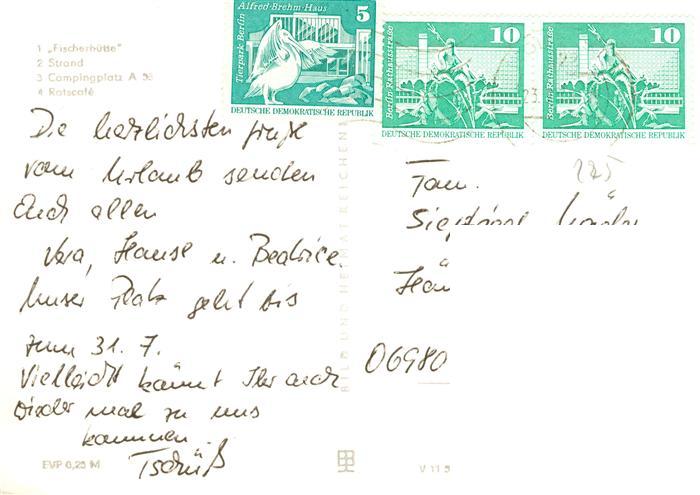 1 „Fischerhütte"
2 Strand
3 Campingplatz A 98
4 Ratscafé
Tierpark Berlin
Alfred-Brehm-Haus
5
DEUTSCHE DEMOKRATISCHE REPUBLIK
Berlin Rathausstraße
10
DEUTSCHE DEMOKRATISCHE REPUBLIK
Berlin Rathausstraße
10
DEUTSCHE DEMOKRATISCHE REPUBLIK
23.
Die herzlichsten Grüße
vom Urlaub senden
Euch allen
Vera, Hause u. Beatrice.
Unser Platz geht bis
zum 31. 7.
Vielleicht kännt Ihr auch
wieder mal zu uns
kommen.
Tschüß
BILD UND HEIMAT REICHENB
225
Fam.
06980
EVP 0,25 M
V 11 5